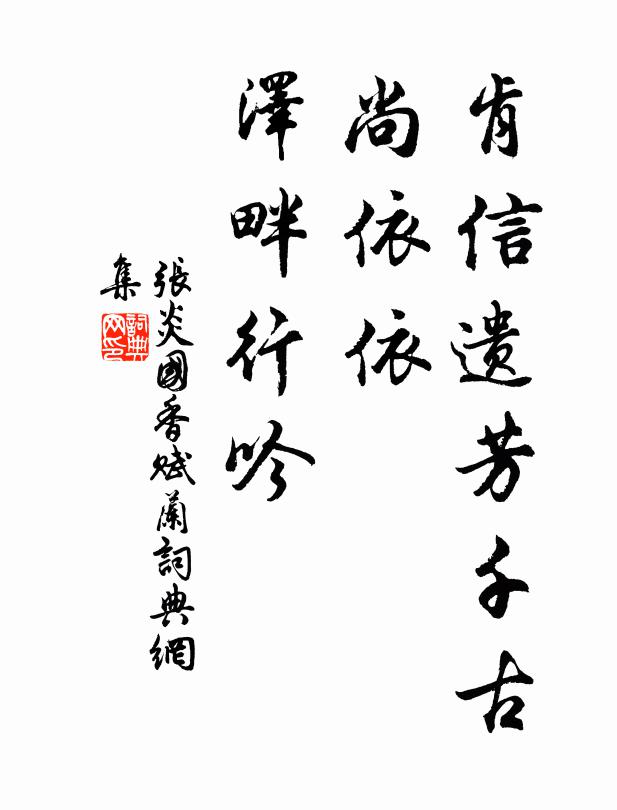 肯信遗芳千古
尚依依
澤畔行吟
張炎國香赋蘭詞典網
集
詞典
网印